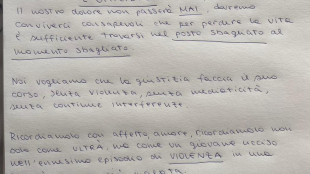 Il nostro dolore non passerà MAI, dovremo
convivere consapevoli che per perdere la vita
è sufficiente trovarsi nel posto sbagliato al
momento sbagliato.
Noi vogliamo che la giustizia faccia il suo
corso, senza violenza, senza mediaticità,
senza continue interferenze.
Ricordiamolo con affetto, amore, ricordiamolo non
solo come ULTRÀ, ma come un giovane ucciso
nell'ennesimo episodio di VIOLENZA in una